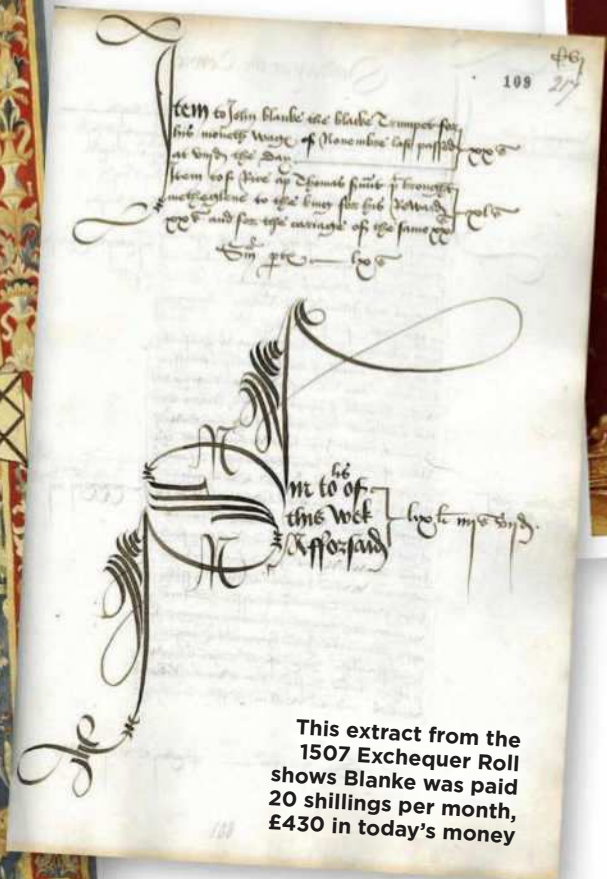 109
217
Item to John Blanke the blacke Trumpet for
his moneth wage of Novembre last passed
at viijd the day
xxs
Item to Rice ap Thomas brought
to the king for his Reward
xxs and for the cariage of the same xxs
xls
lxs
to of
this Wek
Afforsaid
This extract from the
1507 Exchequer Roll
shows Blanke was paid
20 shillings per month,
£430 in today's money